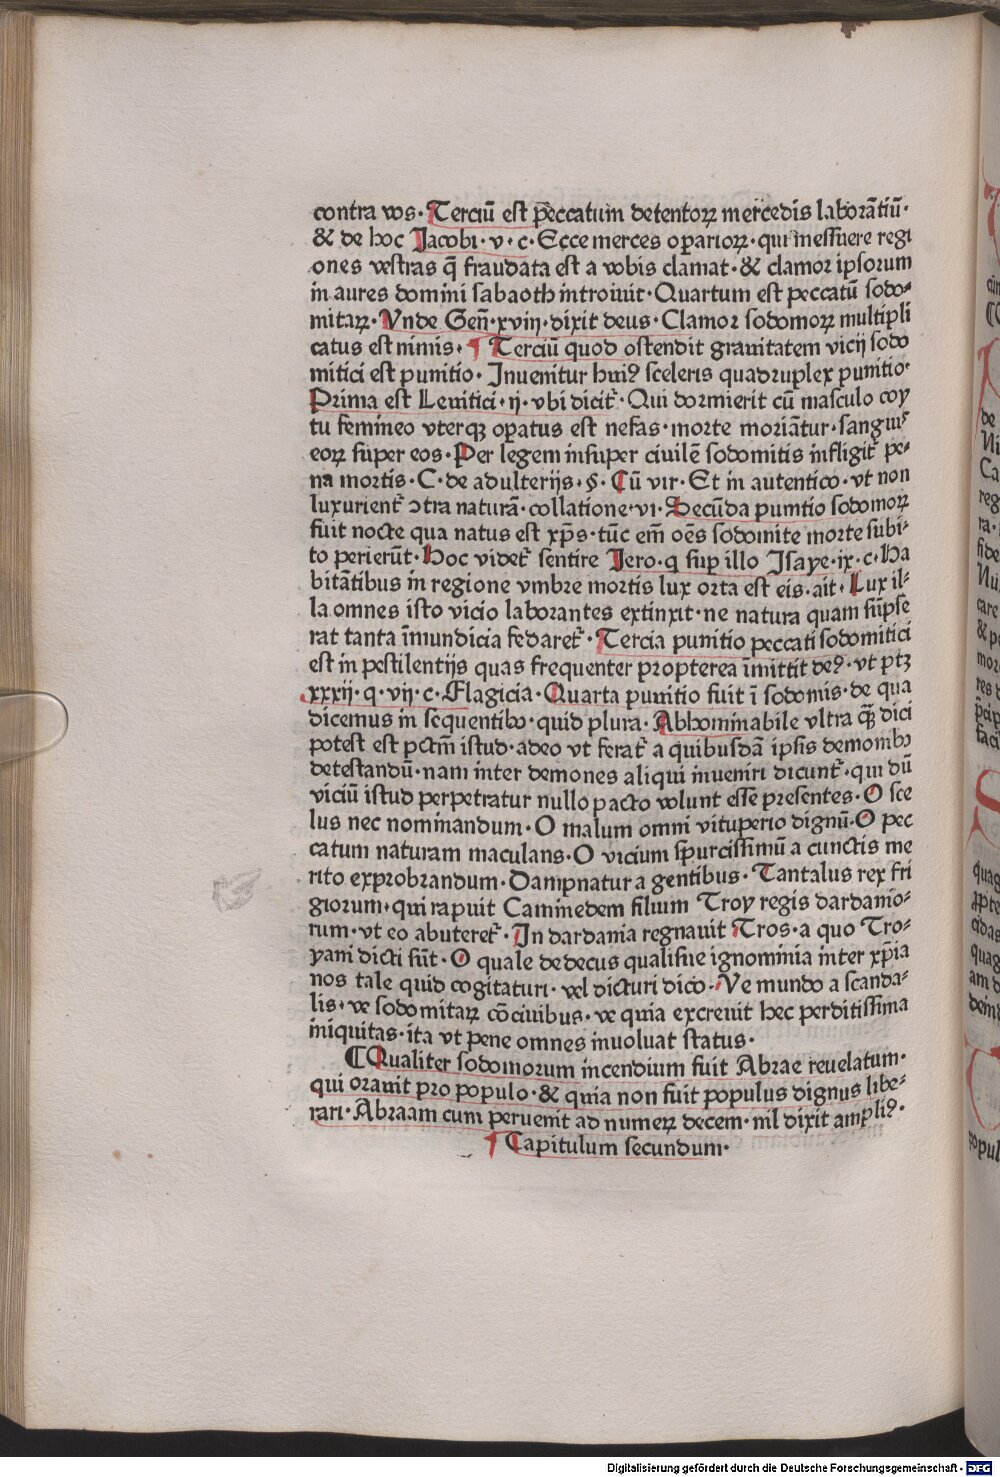 contra vos· Terciū est peccatum detentoꝝ mercedis laborātiū·
& de hoc Jacobi·v·c·Ecce merces oꝑarioꝝ·qui messuere regi
ones vestras q̄ fraudata est a vobis clamat·& clamor ipsorum
in aures domini sabaoth introiuit·Quartum est peccatū sodo⸗
mitaꝝ·Vnde Geñ·xviij·dixit deus·Clamor sodomoꝝ multipli
catus est nimis· ¶ Terciū quod ostendit grauitatem vicij sodo
mitici est punitio·Inuenitur huiꝰ sceleris quadruplex punitio·
Prima est Leuitici·ij·vbi dicit᷑·Qui dormierit cū masculo coy
tu femineo vterqꝫ oꝑatus est nefas·morte moriātur·sanguiˢ
eoꝝ super eos·Per legem insuper ciuilē sodomitis infligit᷑ pe⸗
na mortis·C·de adulterijs·§·Cū vir·Et in autentico·vt non
luxurient᷑ ↄtra naturā·collatione·vi·Secūda punitio sodomoꝝ
fuit nocte qua natus est xp̄s·tūc em̄ oēs sodomite morte subi⸗
to perierūt·Hoc videt᷑ sentire Jero·q sup illo Isaye·ix·c·Ha
bitātibus in regione vmbre mortis lux orta est eis·ait·Lux il⸗
la omnes isto vicio laborantes extinxit·ne natura quam sūpse
rat tanta īmundicia fedaret᷑·Tercia punitio peccati sodomitici
est in pestilentijs quas frequenter propterea īmittit deꝰ·vt ptꝫ
xxxij·q·vij·c·Flagicia·Quarta punitio fuit ī sodomis·de qua
dicemus in sequentibꝰ·quid plura·Abhominabile vltra q̄ꝫ dici
potest est pctm̄ istud·adeo vt ferat᷑ a quibusdā ipsis demonibꝰ
detestandū·nam inter demones aliqui inueniri dicunt᷑·qui dū
viciū istud perpetratur nullo pacto volunt esse presentes·O sce
lus nec nominandum·O malum omni vituperio dignū·O pec
catum naturam maculans·O vicium spurcissimū a cunctis me
rito exprobrandum·Dampnatur a gentibus·Tantalus rex fri
giorum·qui rapuit Caminedem filium Troy regis dardanio⸗
rum·vt eo abuteret᷑·In dardania regnauit Tros·a quo Tro⸗
yani dicti sūt·O quale dedecus qualisue ignominia inter xp̄ia
nos tale quid cogitaturi·vel dicturi dico·Ve mundo a scanda⸗
lis·ve sodomitaꝝ cōciuibus·ve quia excreuit hec perditissima
iniquitas·ita vt pene omnes inuoluat status·
¶Qualiter sodomorum incendium fuit Abrae reuelatum·
qui orauit pro populo·& quia non fuit populus dignus libe⸗
rari·Abraam cum peruenit ad numeꝝ decem·nil dixit ampliꝰ·
¶ Capitulum secundum·
Digitalisierung gefördert durch die Deutsche Forschungsgemeinschaft · DFG